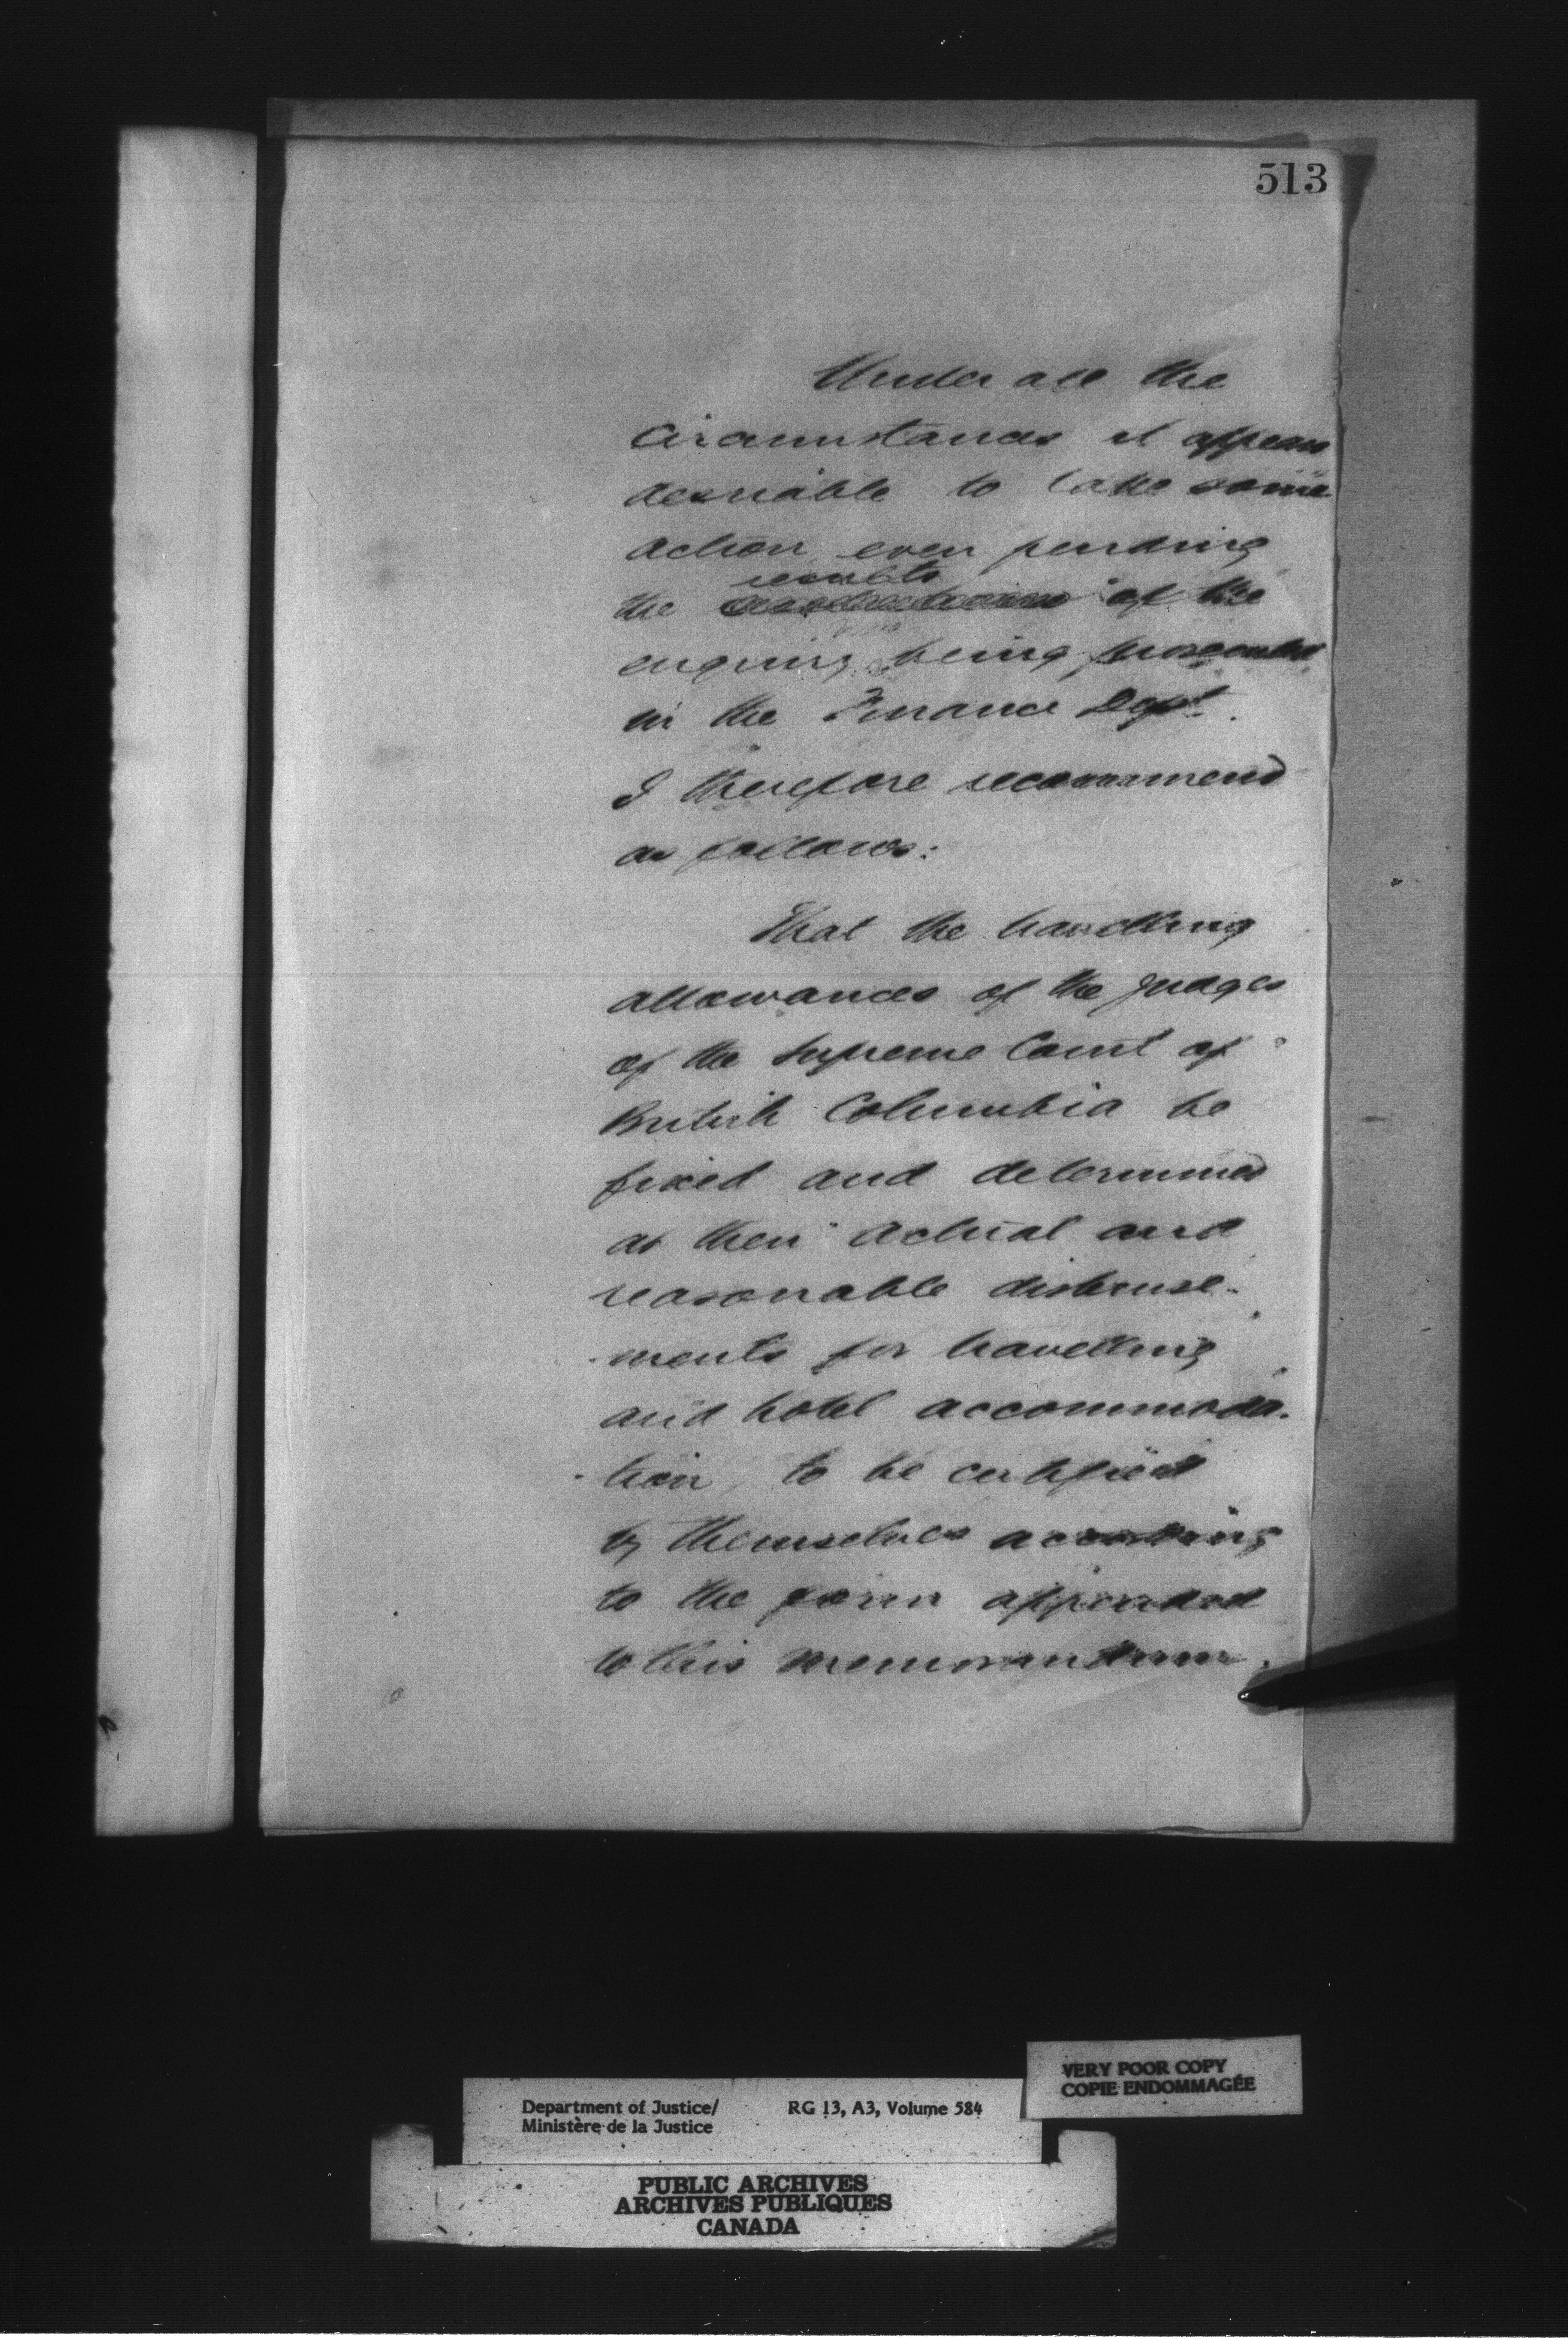 513
Under all the
circumstances it appears
desirable to take some
action even pending
results
the of the
enquiry being prosecuted
in the Finance Dept.
I therefore recommend
as follows:
That the travelling
allowances of the Judges
of the Supreme Court of
British Columbia be
fixed and determined
at their actual and
reasonable disburse-
-ments for travelling
and hotel accommoda-
-tion, to be certified
by themselves according
to the form appended
to this memorandum.
VERY POOR COPY
COPIE ENDOMMAGÉE
Department of Justice/ RG 13, A3, Volume 584
Ministère de la Justice
PUBLIC ARCHIVES
ARCHIVES PUBLIQUES
CANADA